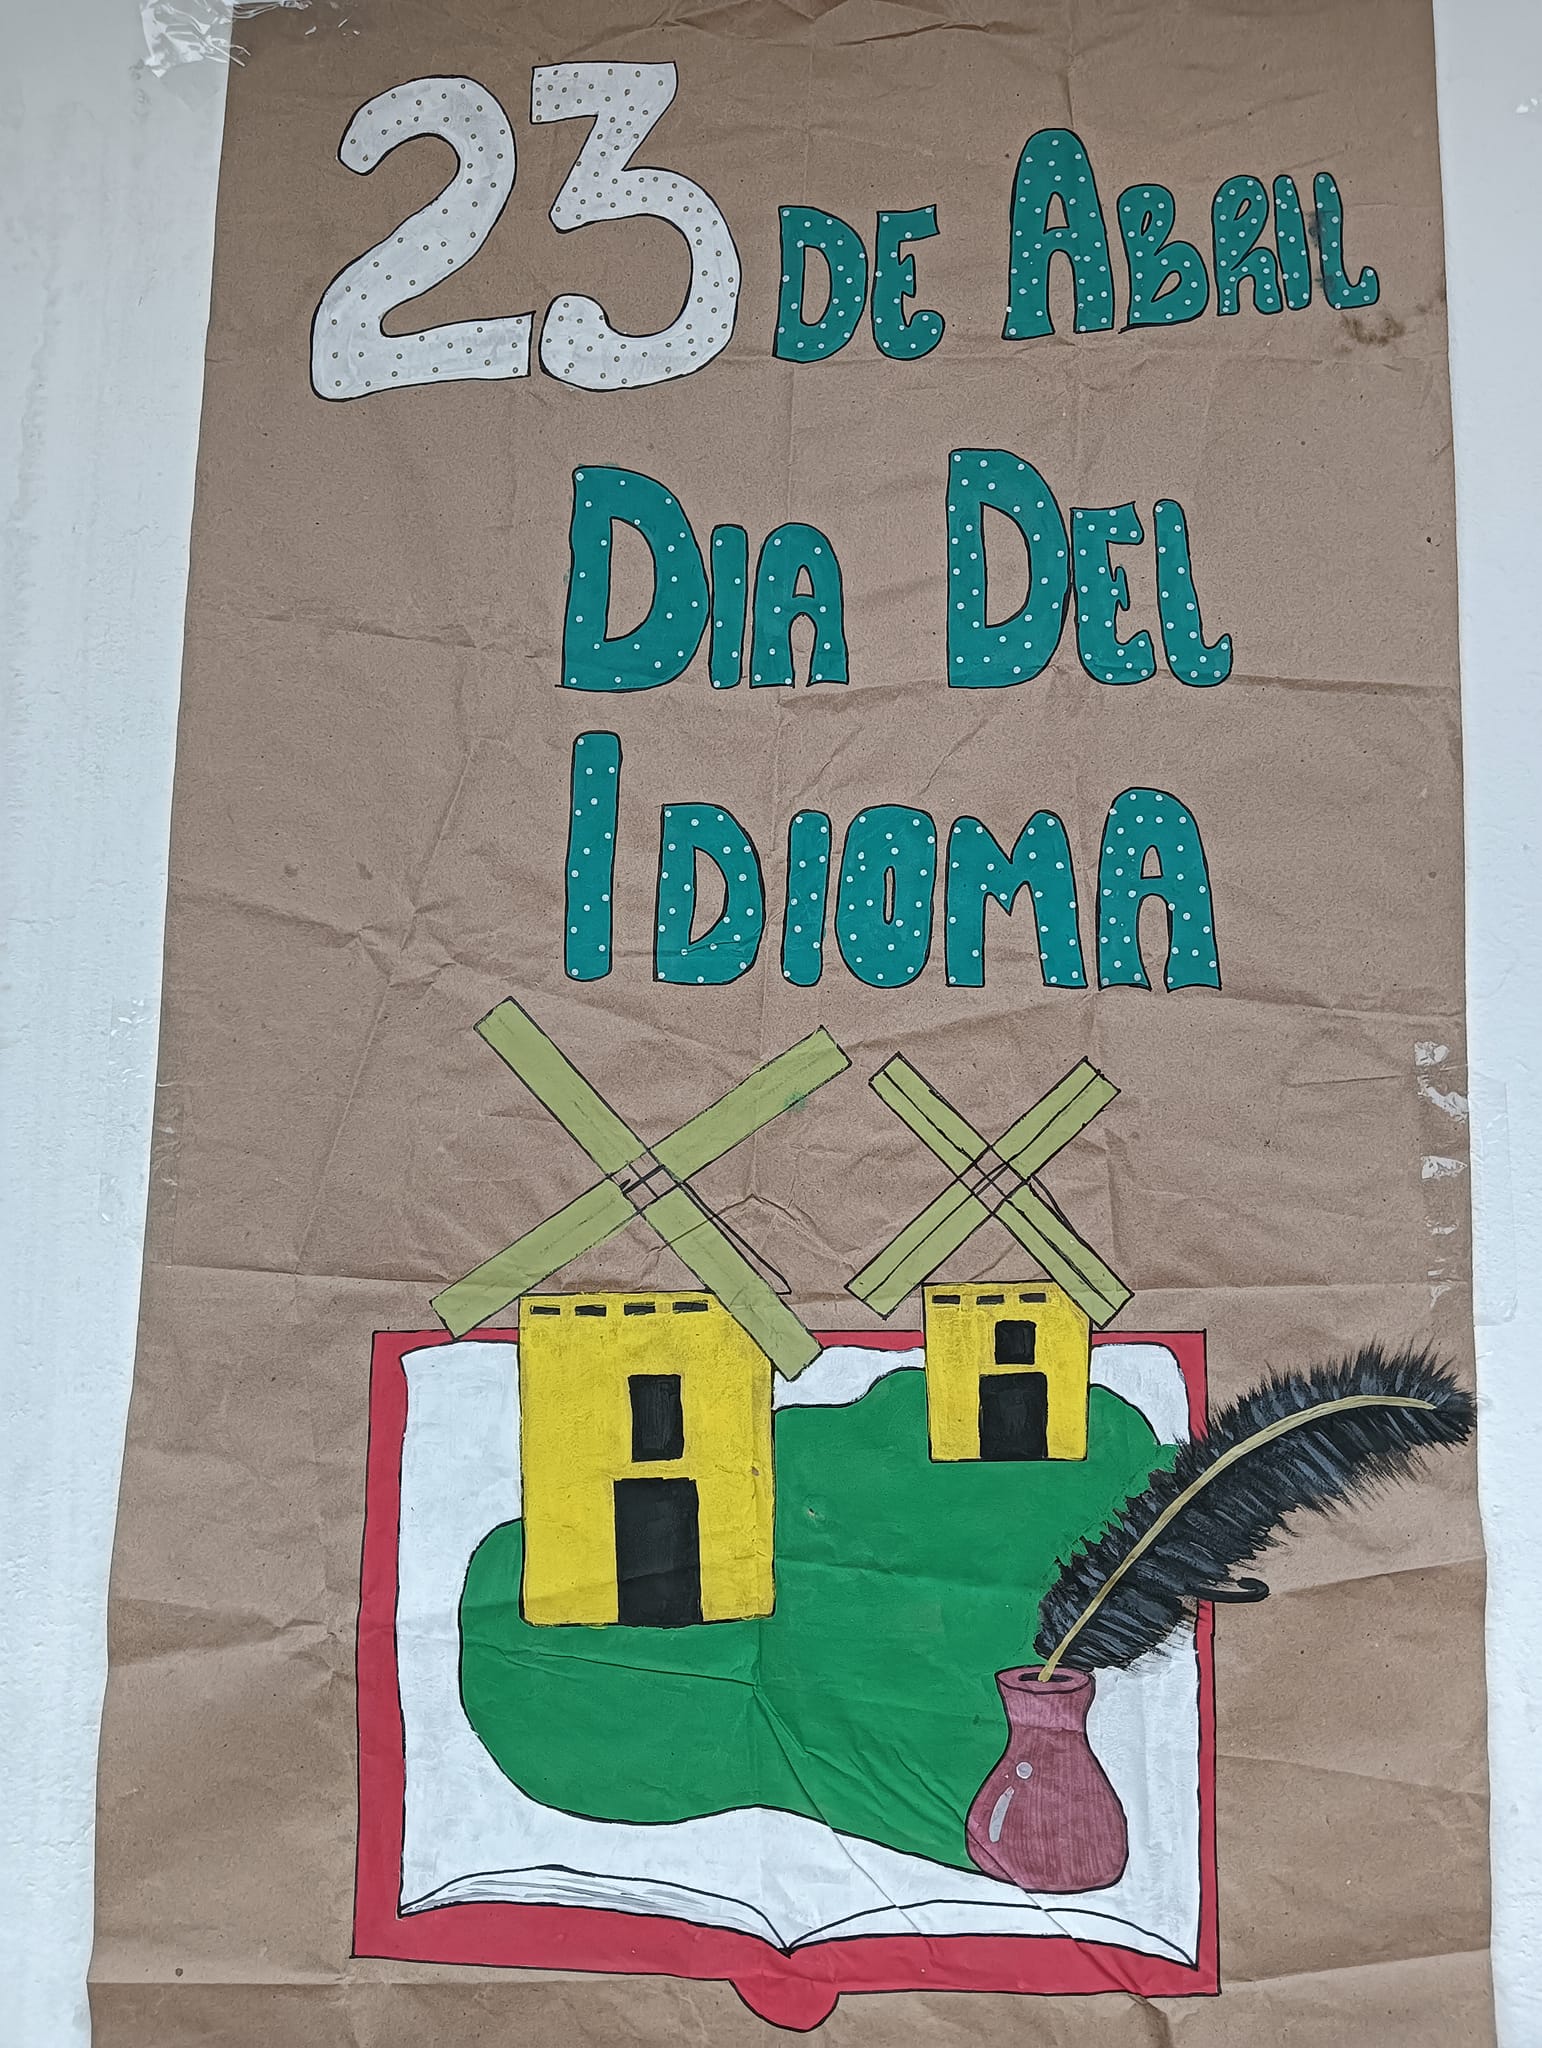 23 DE ABRIL
DIA DEL
IDIOMA